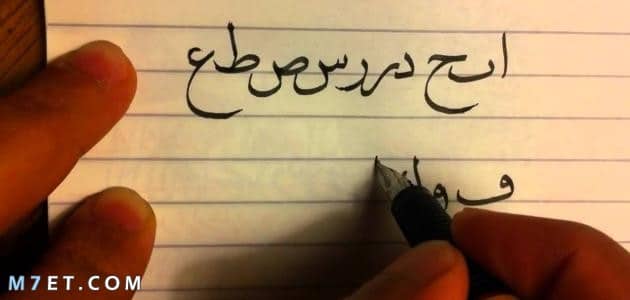 ا ٮ ح د ر ر س ص ط ع
ف و
M7ET.COM